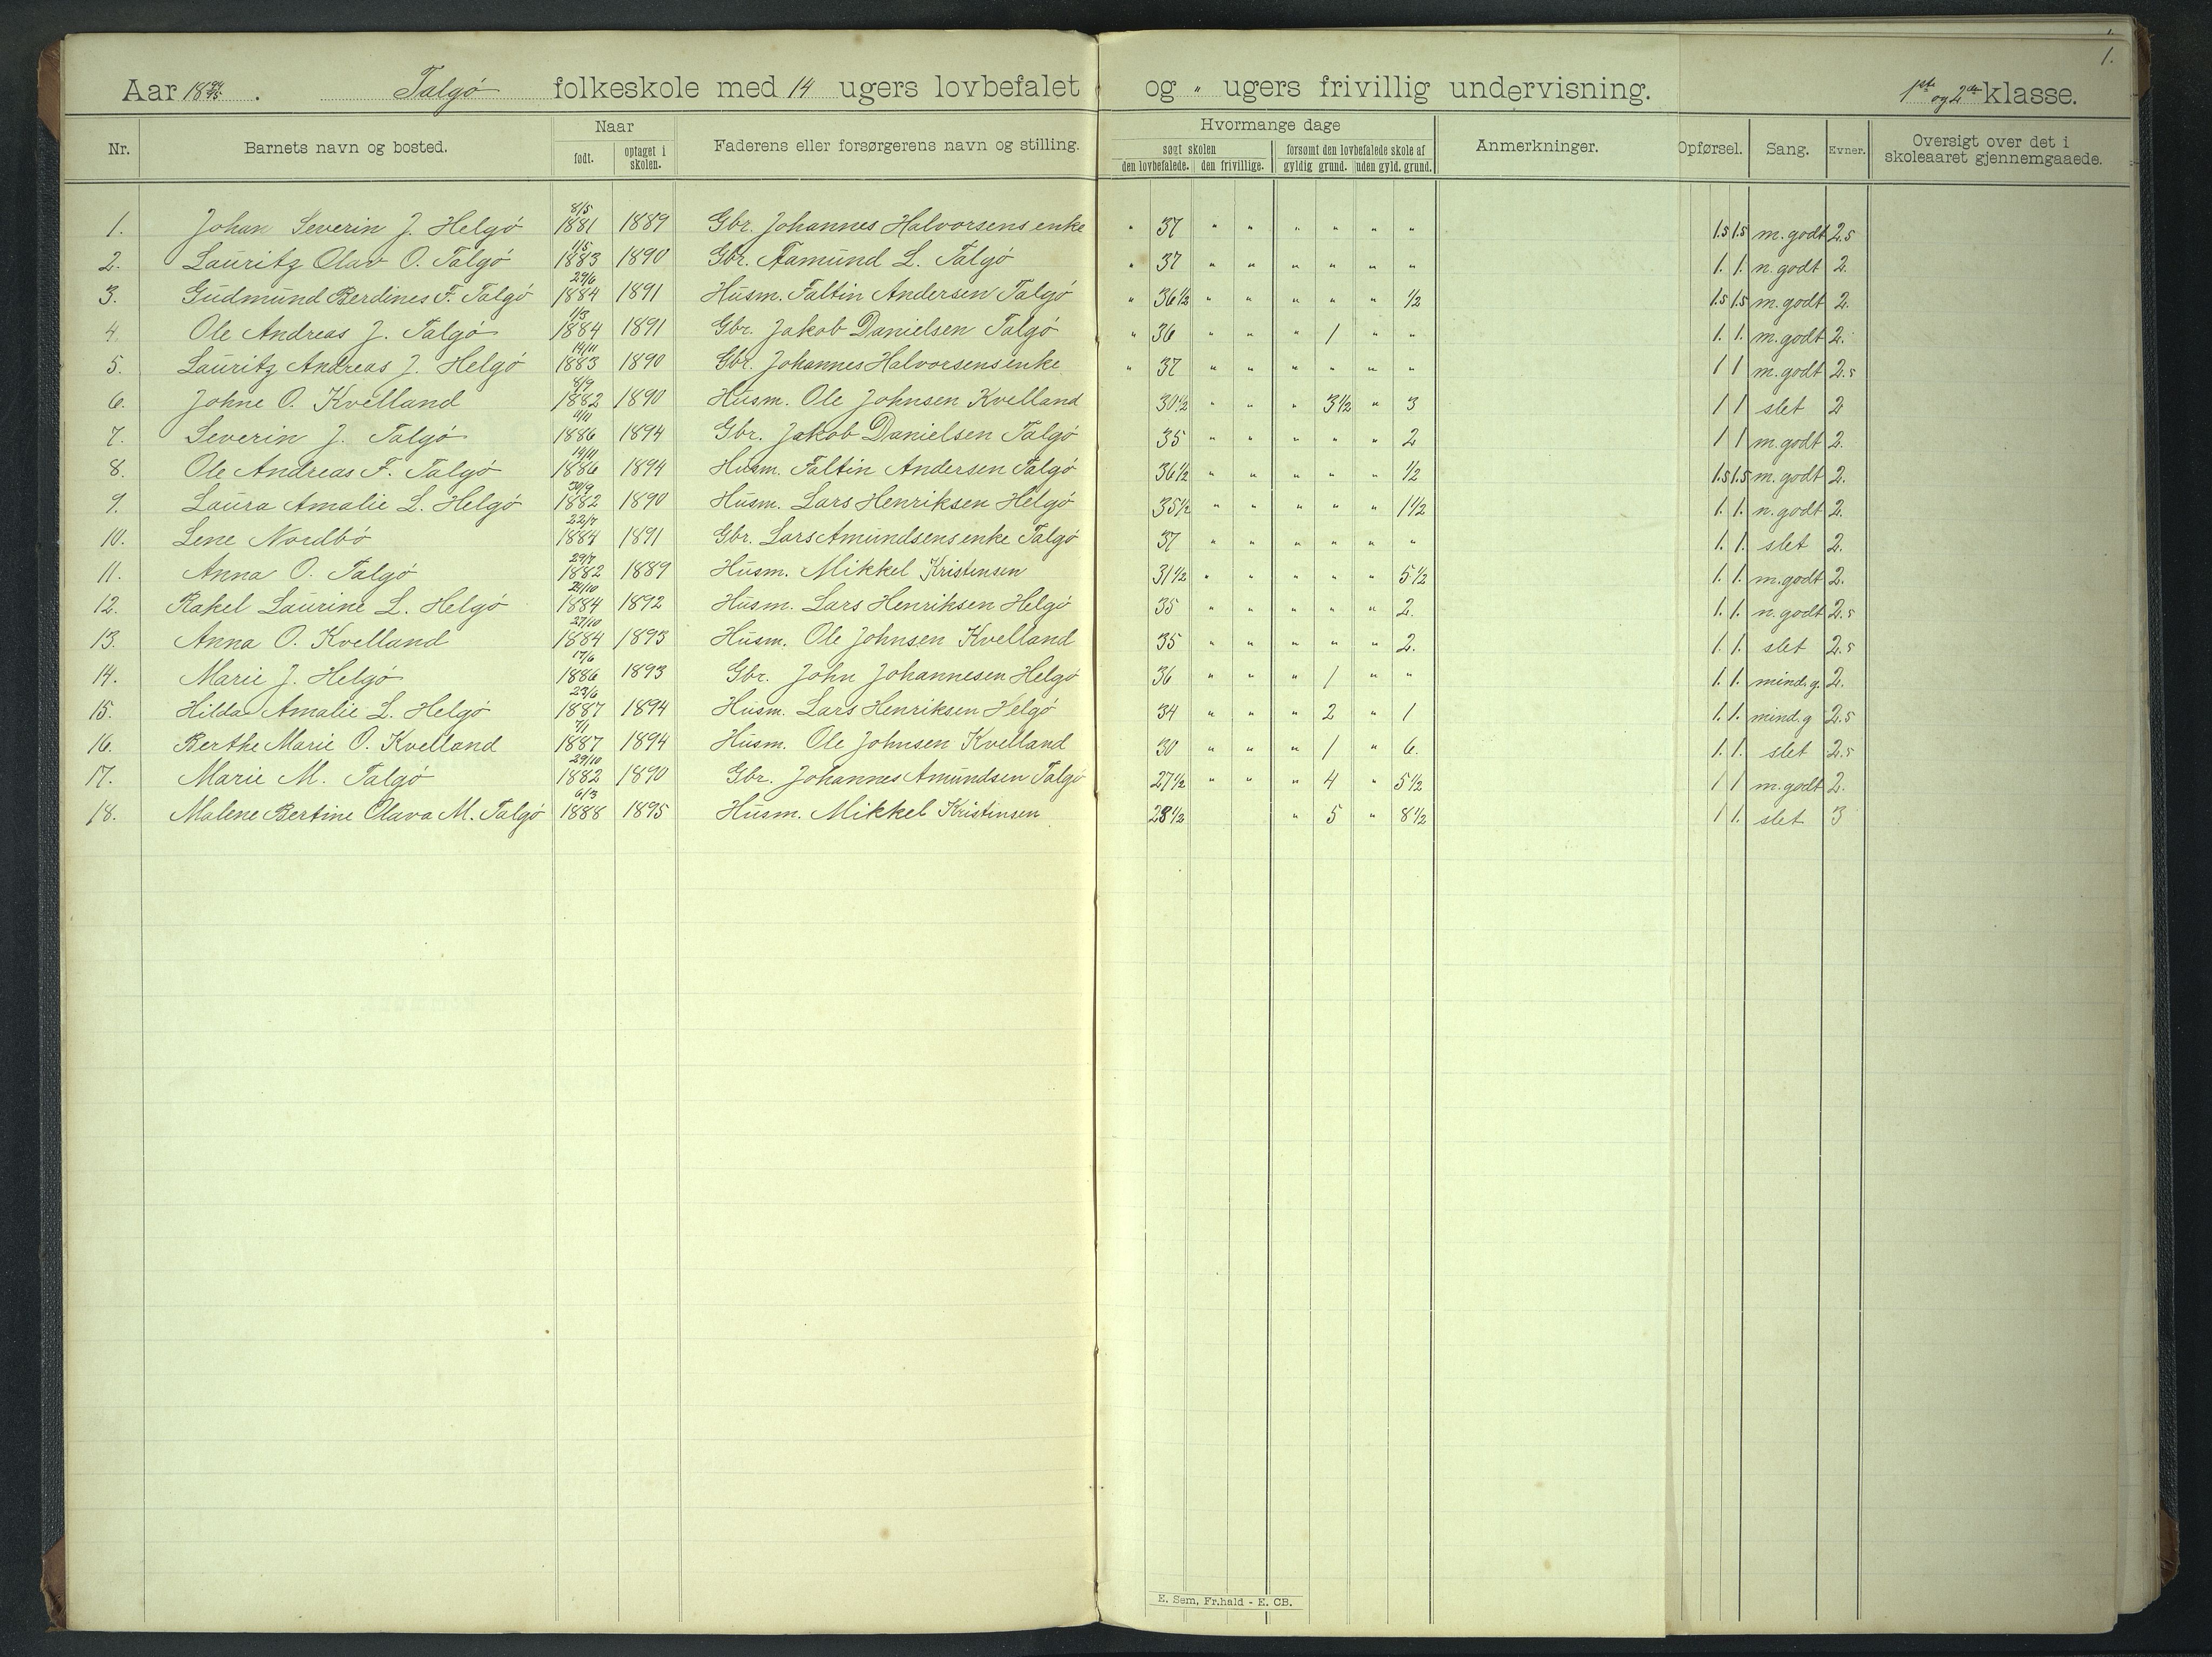 1.
Aar 18 94/95. Talgø folkeskole med 14 ugers lovbefalet og " ugers frivillig undervisning. 1ste og 2den klasse.
Nr. Barnets navn og bosted. Naar født. optaget i skolen. Faderens eller forsørgerens navn og stilling. Hvormange dage søgt skolen den lovbefalede. den frivillige. forsømt den lovbefalede skole af gyldig grund. uden gyld. grund. Anmerkninger. Opførsel. Sang. Evner. Oversigt over det i skoleaaret gjennemgaaede.
1. Johan Severin J. Helgø 8/5 1881 1889 Gbr. Johannes Halvorsens enke " 37 " " " " " " 1.5 1.5 m. godt 2.5
2. Lauritz Olav O. Talgø 11/5 1883 1890 Gbr. Aamund L. Talgø " 37 " " " " " " 1. 1. n. godt 2.
3. Gudmund Berdines F. Talgø 29/6 1884 1891 Husm. Faltin Andersen Talgø " 36 1/2 " " " " " 1/2 1.5 1.5 m. godt 2.
4. Ole Andreas J. Talgø 1/3 1884 1891 Gbr. Jakob Danielsen Talgø " 36 " " " 1 " " 1. 1. m. godt 2.
5. Lauritz Andreas J. Helgø 14/11 1883 1890 Gbr. Johannes Halvorsens enke " 37 " " " " " " 1 1 m. godt 2.5
6. Johne O. Kvelland 8/9 1882 1890 Husm. Ole Johnsen Kvelland 30 1/2 " " " 3 1/2 " 3 1 1 slet 2
7. Severin J. Talgø 11/11 1886 1894 Gbr. Jakob Danielsen Talgø 35 " " " " " 2 1 1 m. godt 2.
8. Ole Andreas F. Talgø 14/11 1886 1894 Husm. Faltin Andersen Talgø 36 1/2 " " " " " 1/2 1.5 1.5 m. godt 2.
9. Laura Amalie L. Helgø 30/9 1882 1890 Husm. Lars Henriksen Helgø 35 1/2 " " " " " 1 1/2 1. 1. n. godt 2.
10. Lene Nordbø 22/7 1884 1891 Gbr. Lars Amundsens enke Talgø 37 " " " " " " 1. 1. slet 2.
11. Anna O. Talgø 29/7 1882 1889 Husm. Mikkel Kristensen 31 1/2 " " " " " 5 1/2 1. 1. m. godt 2.
12. Rakel Laurine L. Helgø 24/10 1884 1892 Husm. Lars Henriksen Helgø 35 " " " " " 2. 1. 1. n. godt 2.5
13. Anna O. Kvelland 27/10 1884 1893 Husm. Ole Johnsen Kvelland 35 " " " " " 2. 1. 1. slet 2.5
14. Marie J. Helgø 17/6 1886 1893 Gbr. John Johannesen Helgø 36 " " " 1 " " 1. 1. mind. g. 2.
15. Hilda Amalie L. Helgø 23/6 1887 1894 Husm. Lars Henriksen Helgø 34 " " " 2 " 1 1. 1. mind. g 2.5
16. Berthe Marie O. Kvelland 7/1 1887 1894 Husm. Ole Johnsen Kvelland 30 " " " 1 " 6. 1. 1. slet 2.5
17. Marie M. Talgø 29/10 1882 1890 Gbr. Johannes Amundsen Talgø 27 1/2 " " " 4 " 5 1/2 1 1 m. godt 2.
18. Malene Bertine Olava M. Talgø 6/3 1888 1895 Husm. Mikkel Kristinsen 23 1/2 " 5 " 8 1/2 1 1. slet 3
E. Sem, Fr.hald - E. CB.